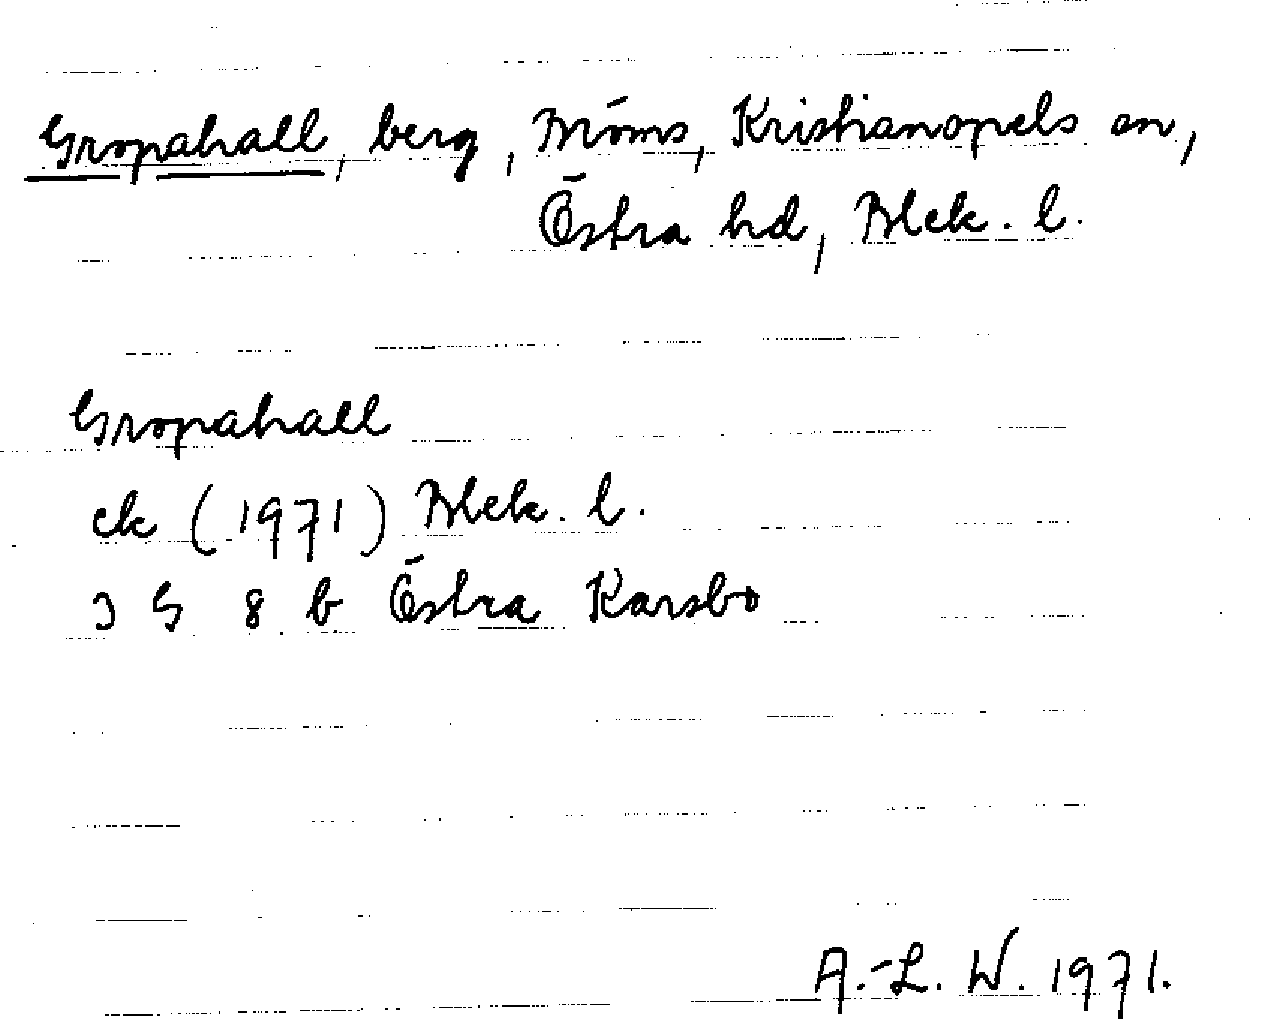 Gropahall, berg, Bröms, Kristianopels sn,
Östra hd, Blek. l.
Gropahall
ek (1971) Blek. l.
3 G 8 b Östra Karsbo
A.-L. W. 1971.